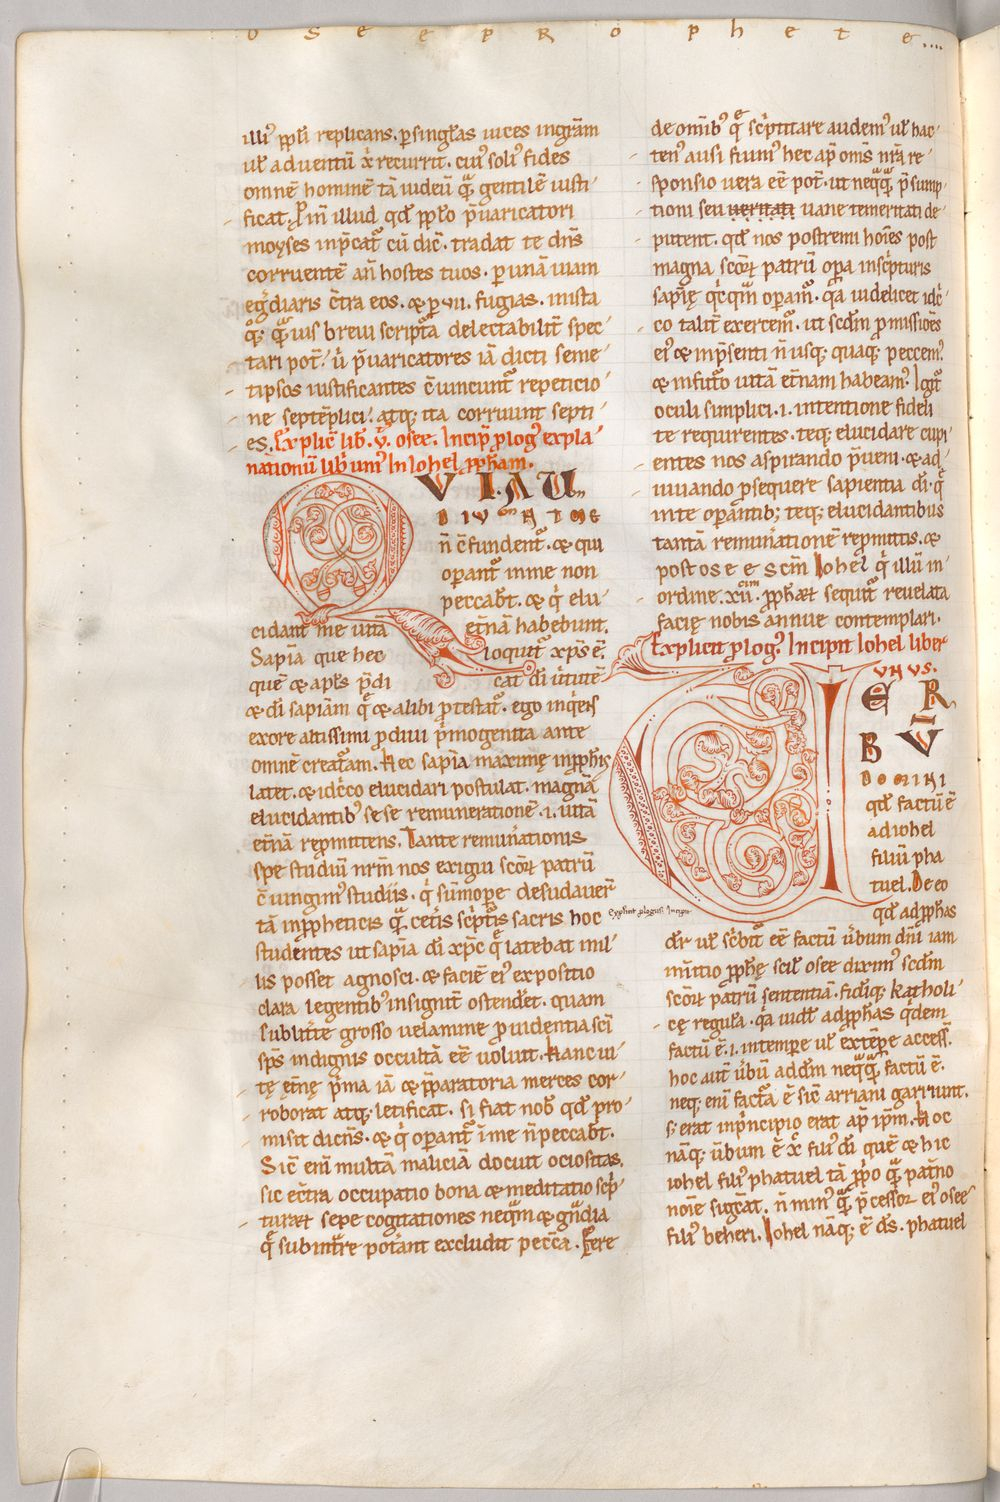 OSEE PROPHETE....
illi' pp̄li replicans. p singl̄as uices ingrām
ul̄ aduentū x̄ recurrit. cui' soli' fides
omnē hominē tā iudeū q̄ gentilē iusti-
ficat. illud qd̄ pp̄lo p̄uaricatori
moyses inp̄cat̄ cū dic̄. tradat te dn̄s
corruentē añ hostes tuos. p unā uiam
eḡdiaris c̄tra eos. & p .vii. fugias. inista
breui script̄a delectabilit̄ spec-
tari pot̄. ū p̄uaricatores iā dicti seme-
tipsos iustificantes c̄iuncunt̄ repeticio-
ne septēplici. atq; ita corruunt septi-
es. Explic̄ lib̄. v̄. osee. Incip̄ p̄log' expla-
nationū lib̄ un' In Iohel pp̄ham.
QVI AU
DIUNT ME
n̄ c̄fundent̄. & qui
operant̄ in me non
peccab̄t. & q̄ elu-
cidant me uitā et̄nā habebunt.
Sapīa que hec loquit̄ xp̄s ē.
quē & ap̄ls p̄di cat dī uirtutē
& dī sapīam q̄ & alibi p̄testat̄. ego inq̄ens
exore altissimi prodiui p̄mogenita ante
omnē creat̄am. Hec sapīa maximę inpp̄his
latet. & idc̄co elucidari postulat. magnā
elucidantib' sese remunerationē .i. uitā
et̄nā rep̄mittens. Tante remun̄ationis
spe studiū nr̄m nos exigui sc̄or patrū
c̄iungim' studiis. q̄ sūmope desudauer̄
tā inpp̄heticis q̄ cet̄is sc̄pt̄is sacris hoc
studentes ut sapīa dī xp̄c q̄ latebat mil-
lis posset agnosci. & faciē ei' expositio
clara legentib' insignit̄ ostend̄et. quam
sublit̄te grosso uelamine p̄uidentia sc̄i
sp̄s indignis occultā eē uoluit. Hanc ui-
tę et̄nę p̄ma iā & p̄paratoria merces cor-
roborat atq; letificat. si fiat nob̄ qd̄ pro-
misit dicn̄s. & q̄ operant̄ ī me n̄ peccab̄t.
Sic̄ enī multā maliciā docuit ociositas.
sic ec̄tra occupatio bona & meditatio sc̄p-
turar sepe cogitationes neq̄m & gn̄dia
q̄ subint̄re pot̄ant excludit pecc̄a. Fere
de omīb' q̄ sc̄ptitare audem' ul̄ hac-
ten' ausi fuim' hec ap̄ oms̄ nr̄a re-
sponsio uera eē pot̄. ut neq̄q̄ p̄sump-
tioni seu ueritati uane temeritati de-
putent. qd̄ nos postremi hoīes post
magna sc̄or patrū op̄a inscripturis
sapīę qc̄q̄m opam'. q̄a uidelicet idc̄-
co talit̄ exercem'. ut sc̄dm p̄missiōes
ei' & inp̄senti n̄ usq; quaq; peccem'
& infut̄o uitā et̄nam habeam'. Igit̄
oculi simplici .i. intentione fideli
te requirentes. teq; elucidare cupi-
entes nos aspirando p̄ueni. & ad-
iuuando p̄sequere sapientia dī. q̄
inte op̄antib; teq; elucidantibus
tantā remunationē rep̄mittis. &
post osee sc̄m Iohel q̄ illū in-
ordine .xii. pp̄haꝝ sequit̄ reuelata
facię nobis annue contemplari.
Explicit p̄log'. Incipit Iohel liber
VNVS.
VERBV
DOMINI
qd̄ factū ē
ad iohel
filiū pha
tuel. De eo
qd̄ ad pp̄has
Explicit p̄logus. Incipit
dr̄ ul̄ sc̄bit̄ eē factū ūbum dn̄i iam
initio pp̄hę scil̄ osee dixim' sc̄dm
sc̄or patrū sententiā. fidiq; katholi-
cę regul̄a. q̄a uidl̄ ad pp̄has q̄dem
factū ē .i. intempe ul̄ extēpe access̄.
hoc aut̄ ūbū ad dm̄ neq̄q̄ factū ē.
neq; enī fact̄a ē sic̄ arriani garriunt.
s; erat inp̄ncipio erat ap̄ ip̄m. Hoc
nāq; ūbum ē x̄ fili' dī quē & hic
iohel fili' phatuel tā pp̄o q̄ pat̄no
noīe sigc̄at. n̄ min' q̄ p̄cessor ei' osee
fili' beheri. Iohel nāq; ē ds̄. phatuel